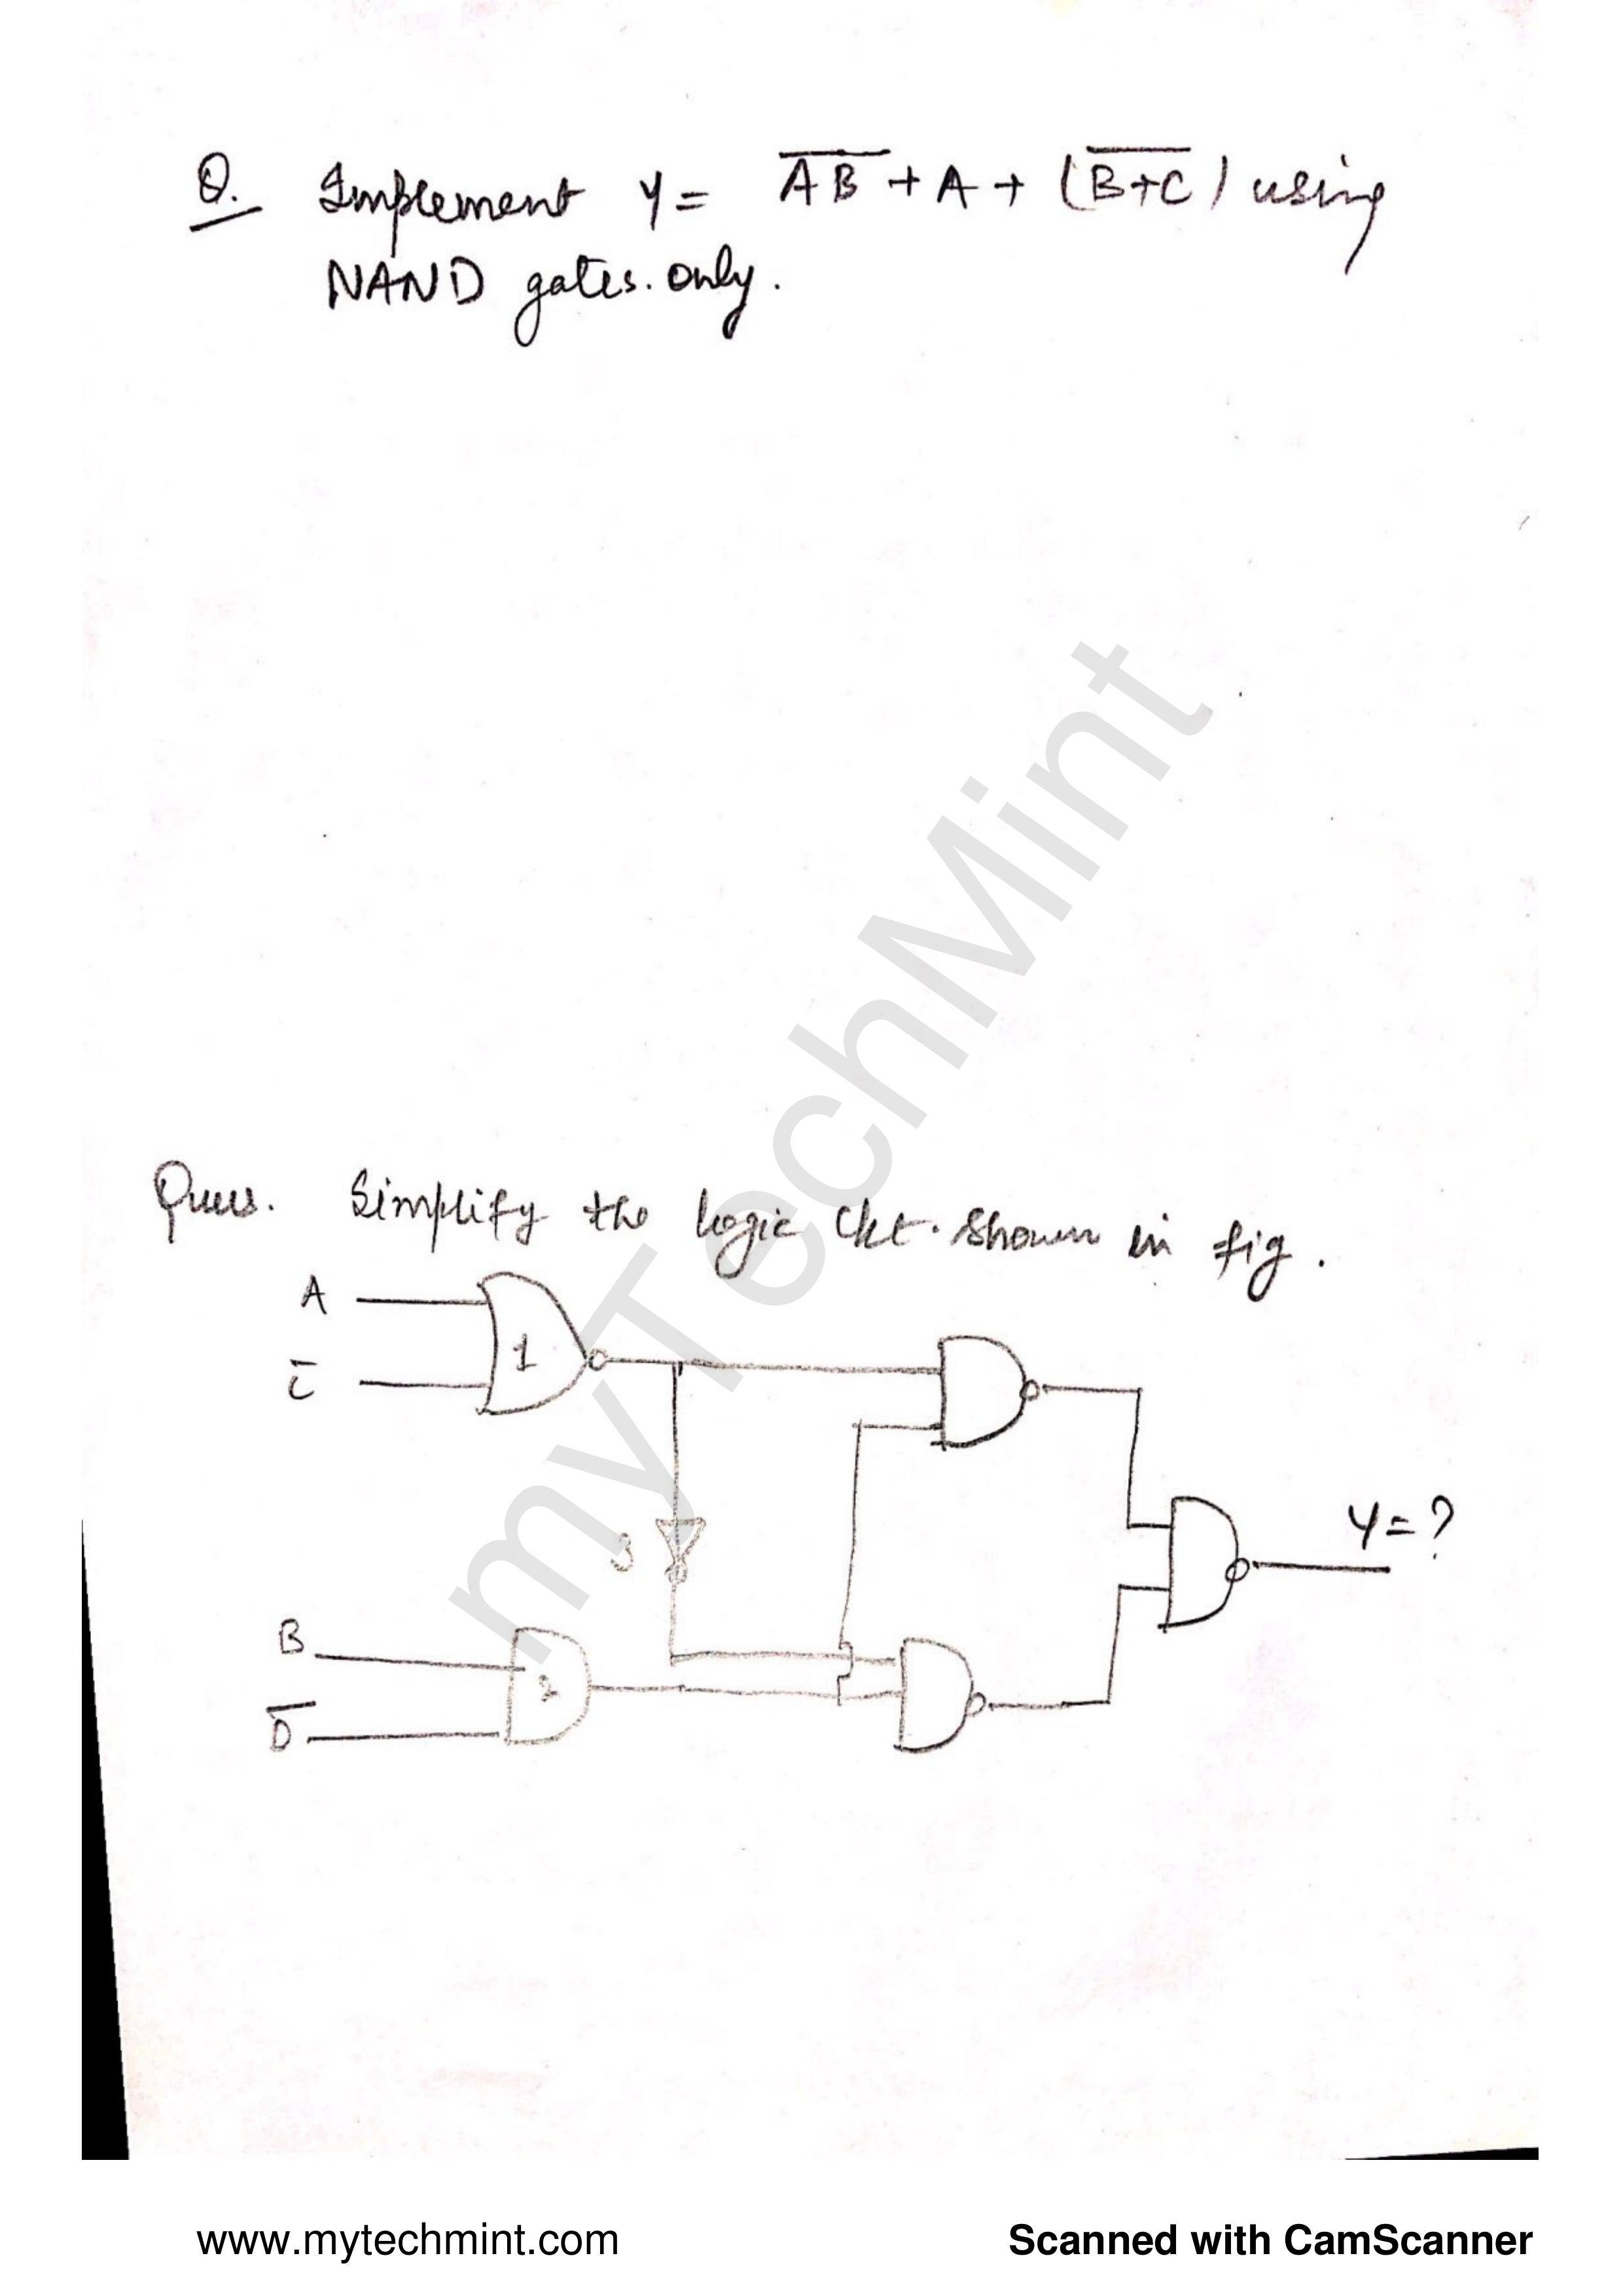 Q. Implement Y = \overline{AB} + A + (\overline{B+C}) using
NAND gates. only.
Ques. Simplify the logic ckt. shown in fig.
A
1
C̅
Y = ?
3
B
2
D̅
myTechMint
www.mytechmint.com
Scanned with CamScanner